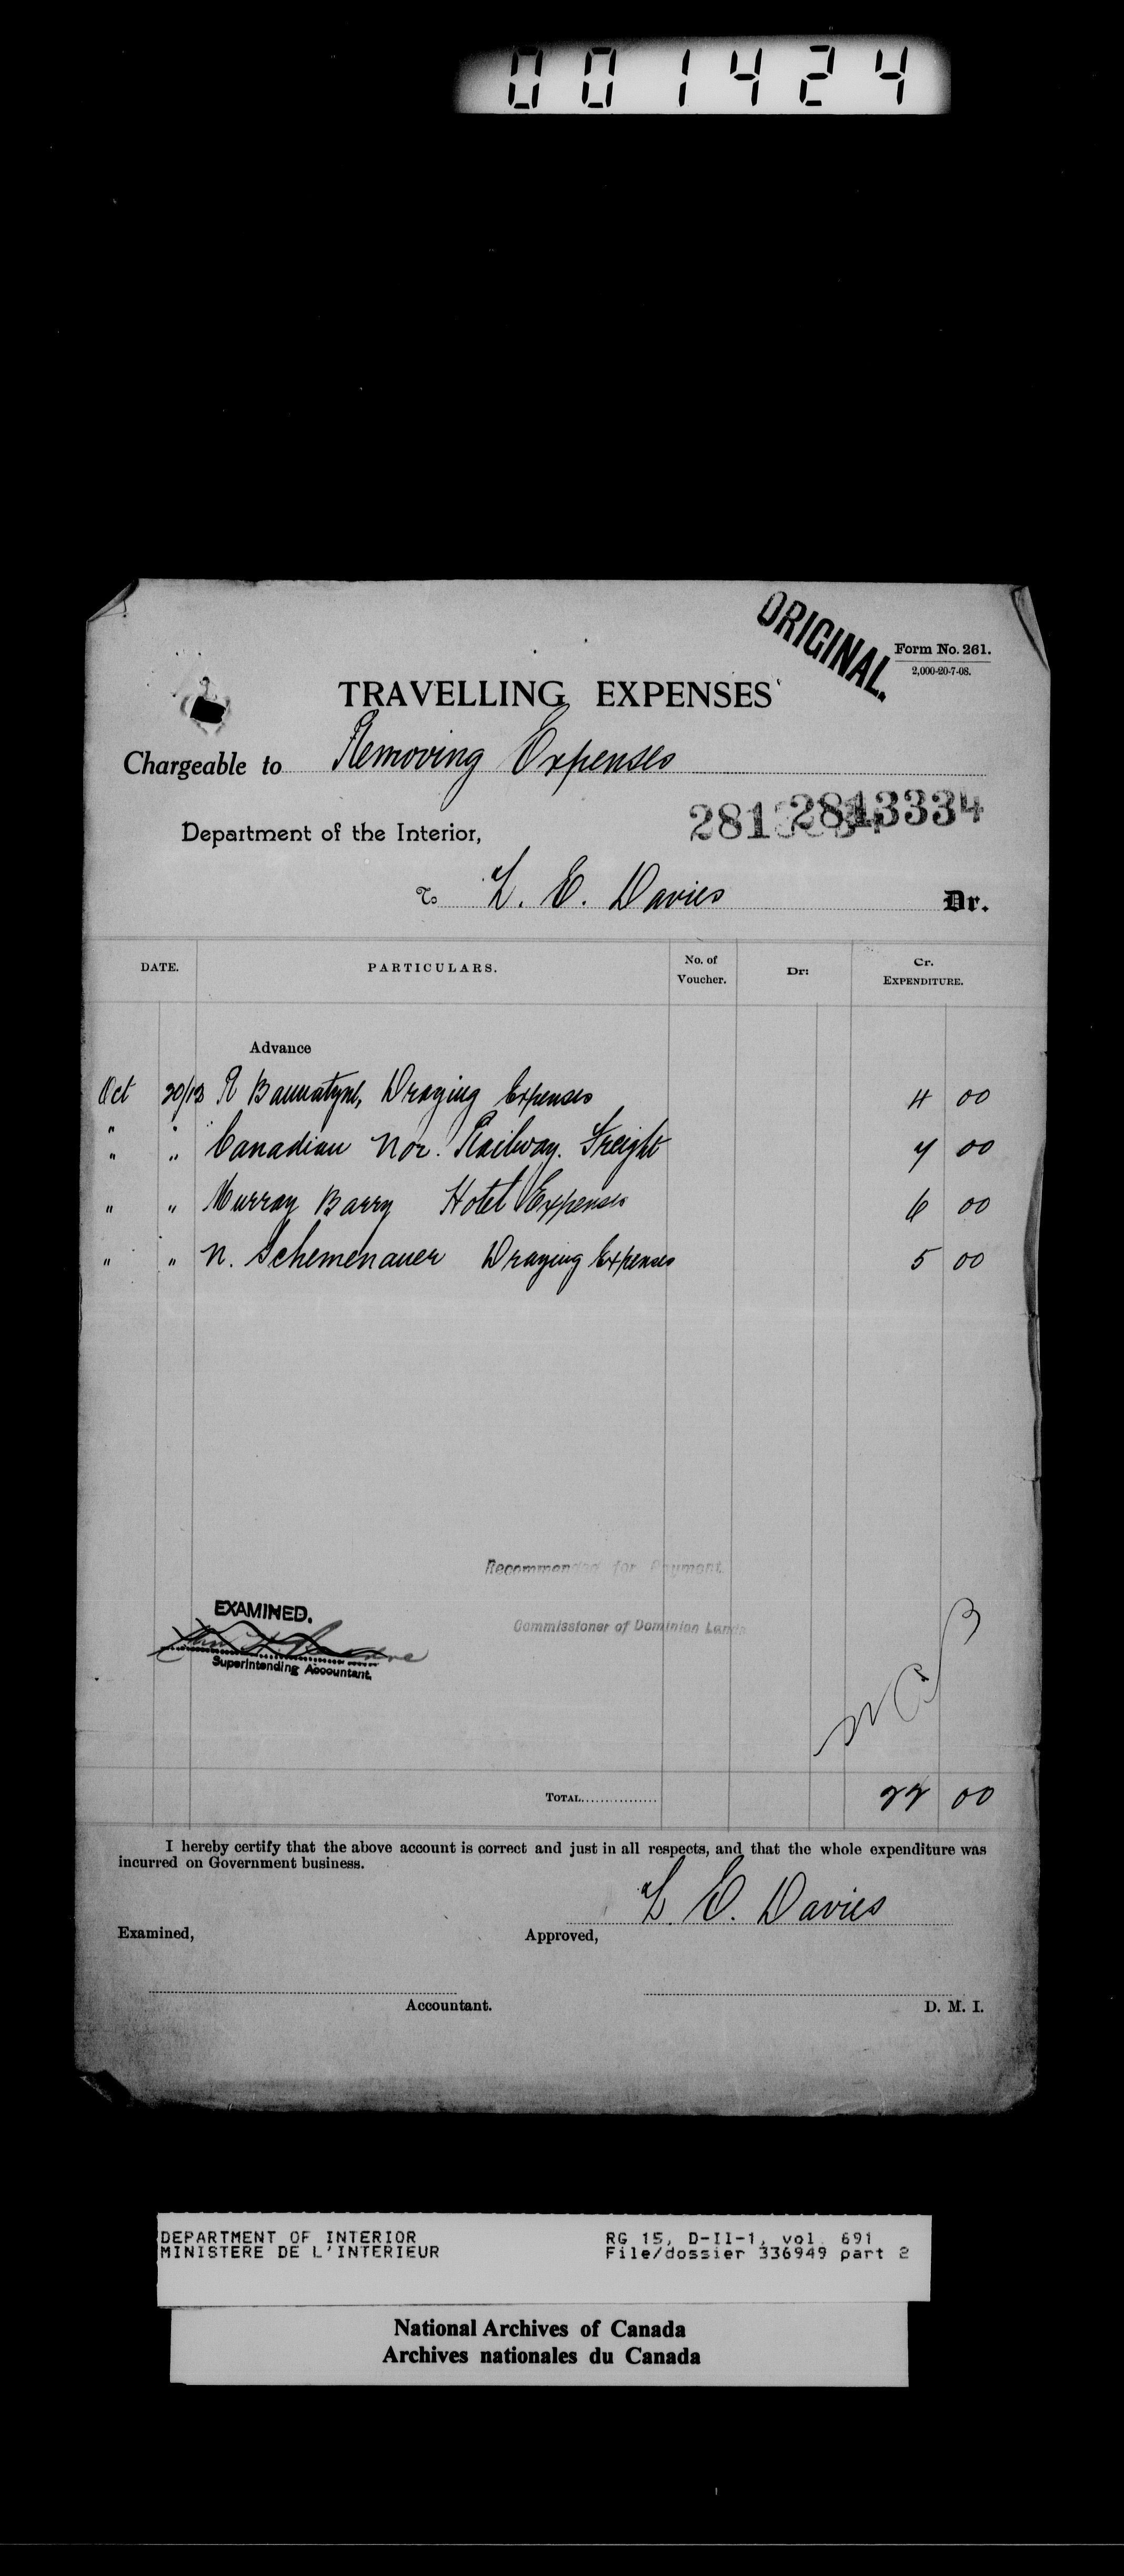 001424
ORIGINAL.
Form No. 261.
2,000-20-7-08.
TRAVELLING EXPENSES
Chargeable to Removing Expenses
2813334
Department of the Interior,
To L. E. Davies Dr.
DATE. PARTICULARS. No. of Voucher. Dr: Cr. EXPENDITURE.
Advance
Oct 20/13 R Bannatyne, Draying Expenses 4 00
" " Canadian Nor. Railway. Freight 7 00
" " Murray Barry Hotel Expenses 6 00
" " N. Schemenauer Draying Expenses 5 00
Recommended for Payment.
EXAMINED.
Commissioner of Dominion Lands
Superintending Accountant.
TOTAL............... 22 00
I hereby certify that the above account is correct and just in all respects, and that the whole expenditure was
incurred on Government business.
L. E. Davies
Examined, Approved,
Accountant. D. M. I.
DEPARTMENT OF INTERIOR RG 15, D-II-1, vol. 691
MINISTERE DE L'INTERIEUR File/dossier 336949 part 2
National Archives of Canada
Archives nationales du Canada